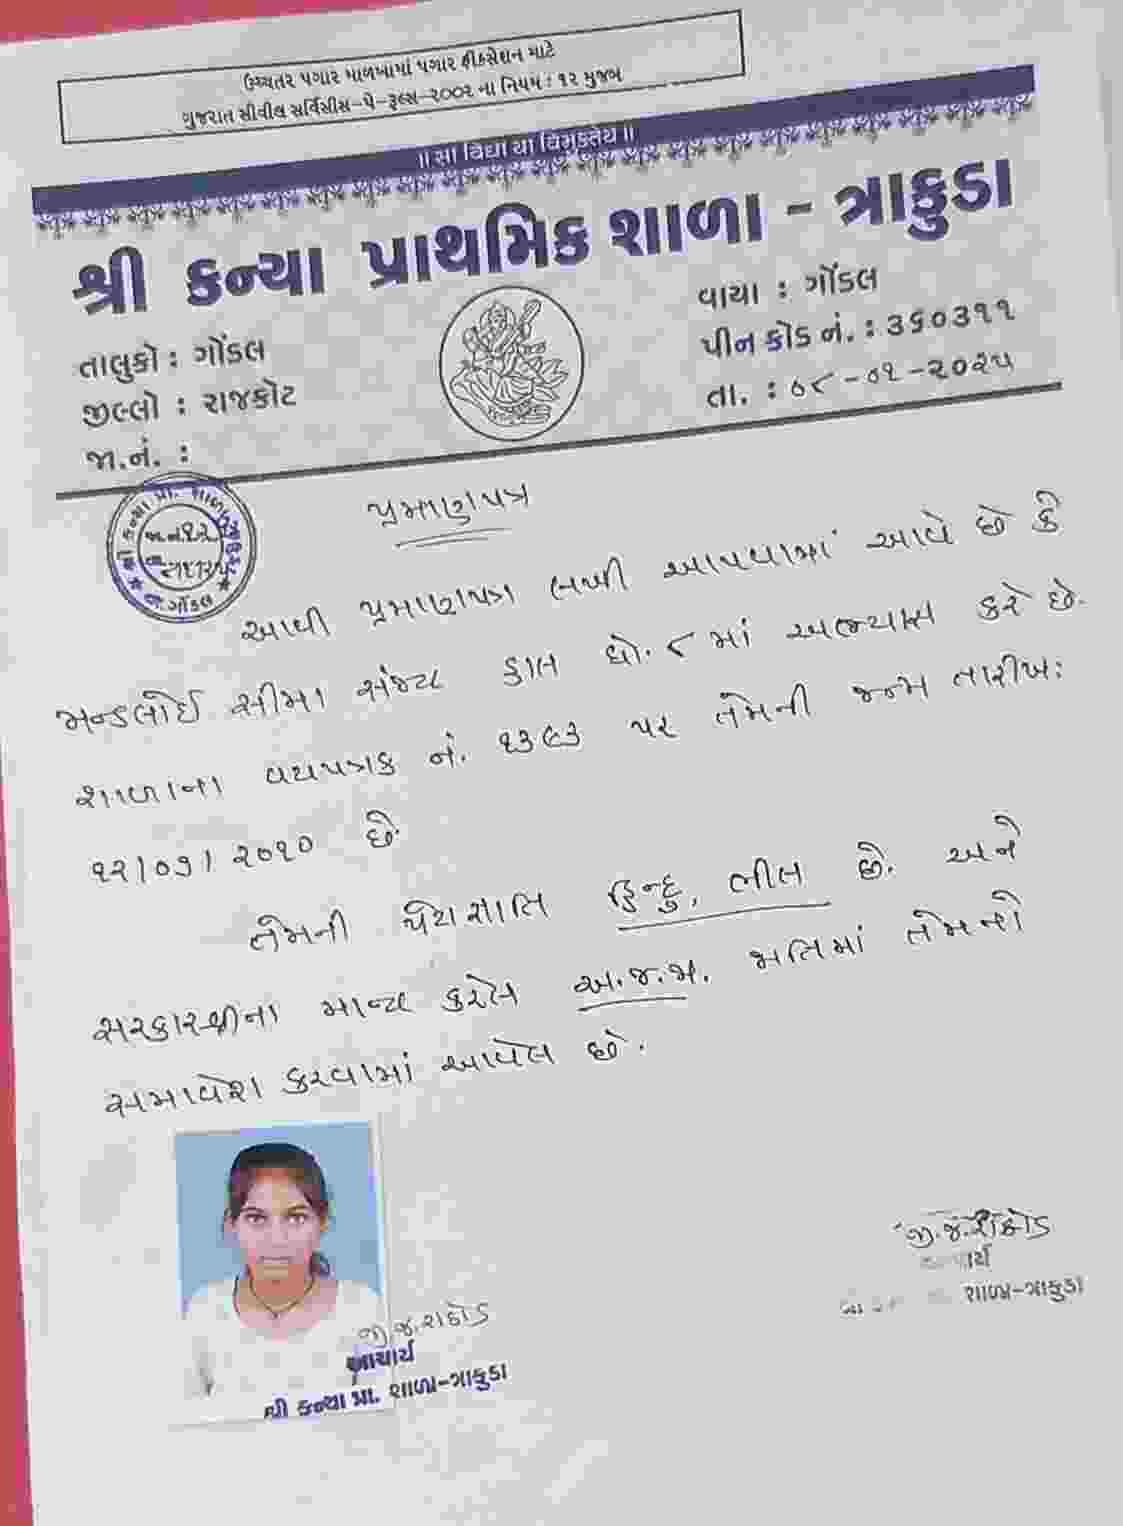 ઉચ્ચતર પગાર માળખામાં પગાર ફીકસેશન માટે
ગુજરાત સીવીલ સર્વિસીસ-પે-રૂલ્સ-૨૦૦૨ ના નિયમ : ૧૨ મુજબ
॥ સા વિદ્યા યા વિમુક્તયે ॥
શ્રી કન્યા પ્રાથમિક શાળા - ત્રાકુડા
તાલુકો : ગોંડલ
જીલ્લો : રાજકોટ
જા.નં. :
વાયા : ગોંડલ
પીન કોડ નં. : ૩૬૦૩૧૧
તા. : ૦૮-૦૧-૨૦૨૫
શ્રી કન્યા પ્રા. શાળા ત્રાકુડા
જા.નં ૧૨
તા. ગોંડલ
પ્રમાણપત્ર
આથી પ્રમાણપત્ર લખી આપવામાં આવે છે કે
મન્ડલોઈ સીમા સંજય હાલ ધો. ૮ માં અભ્યાસ કરે છે.
શાળાના વયપત્રક નં. ૧૩૯૩ પર તેમની જન્મ તારીખ:
૧૨/૦૭/૨૦૧૦ છે.
તેમની પેટાજ્ઞાતિ હિન્દુ, ભીલ છે. અને
સરકારશ્રીના માન્ય કરેલ અ.જ.જા. જાતિમાં તેમનો
સમાવેશ કરવામાં આવેલ છે.
જી.જ.રાઠોડ
આચાર્ય
શ્રી કન્યા પ્રા. શાળા-ત્રાકુડા
જી.જ.રાઠોડ
શાળા-ત્રાકુડા